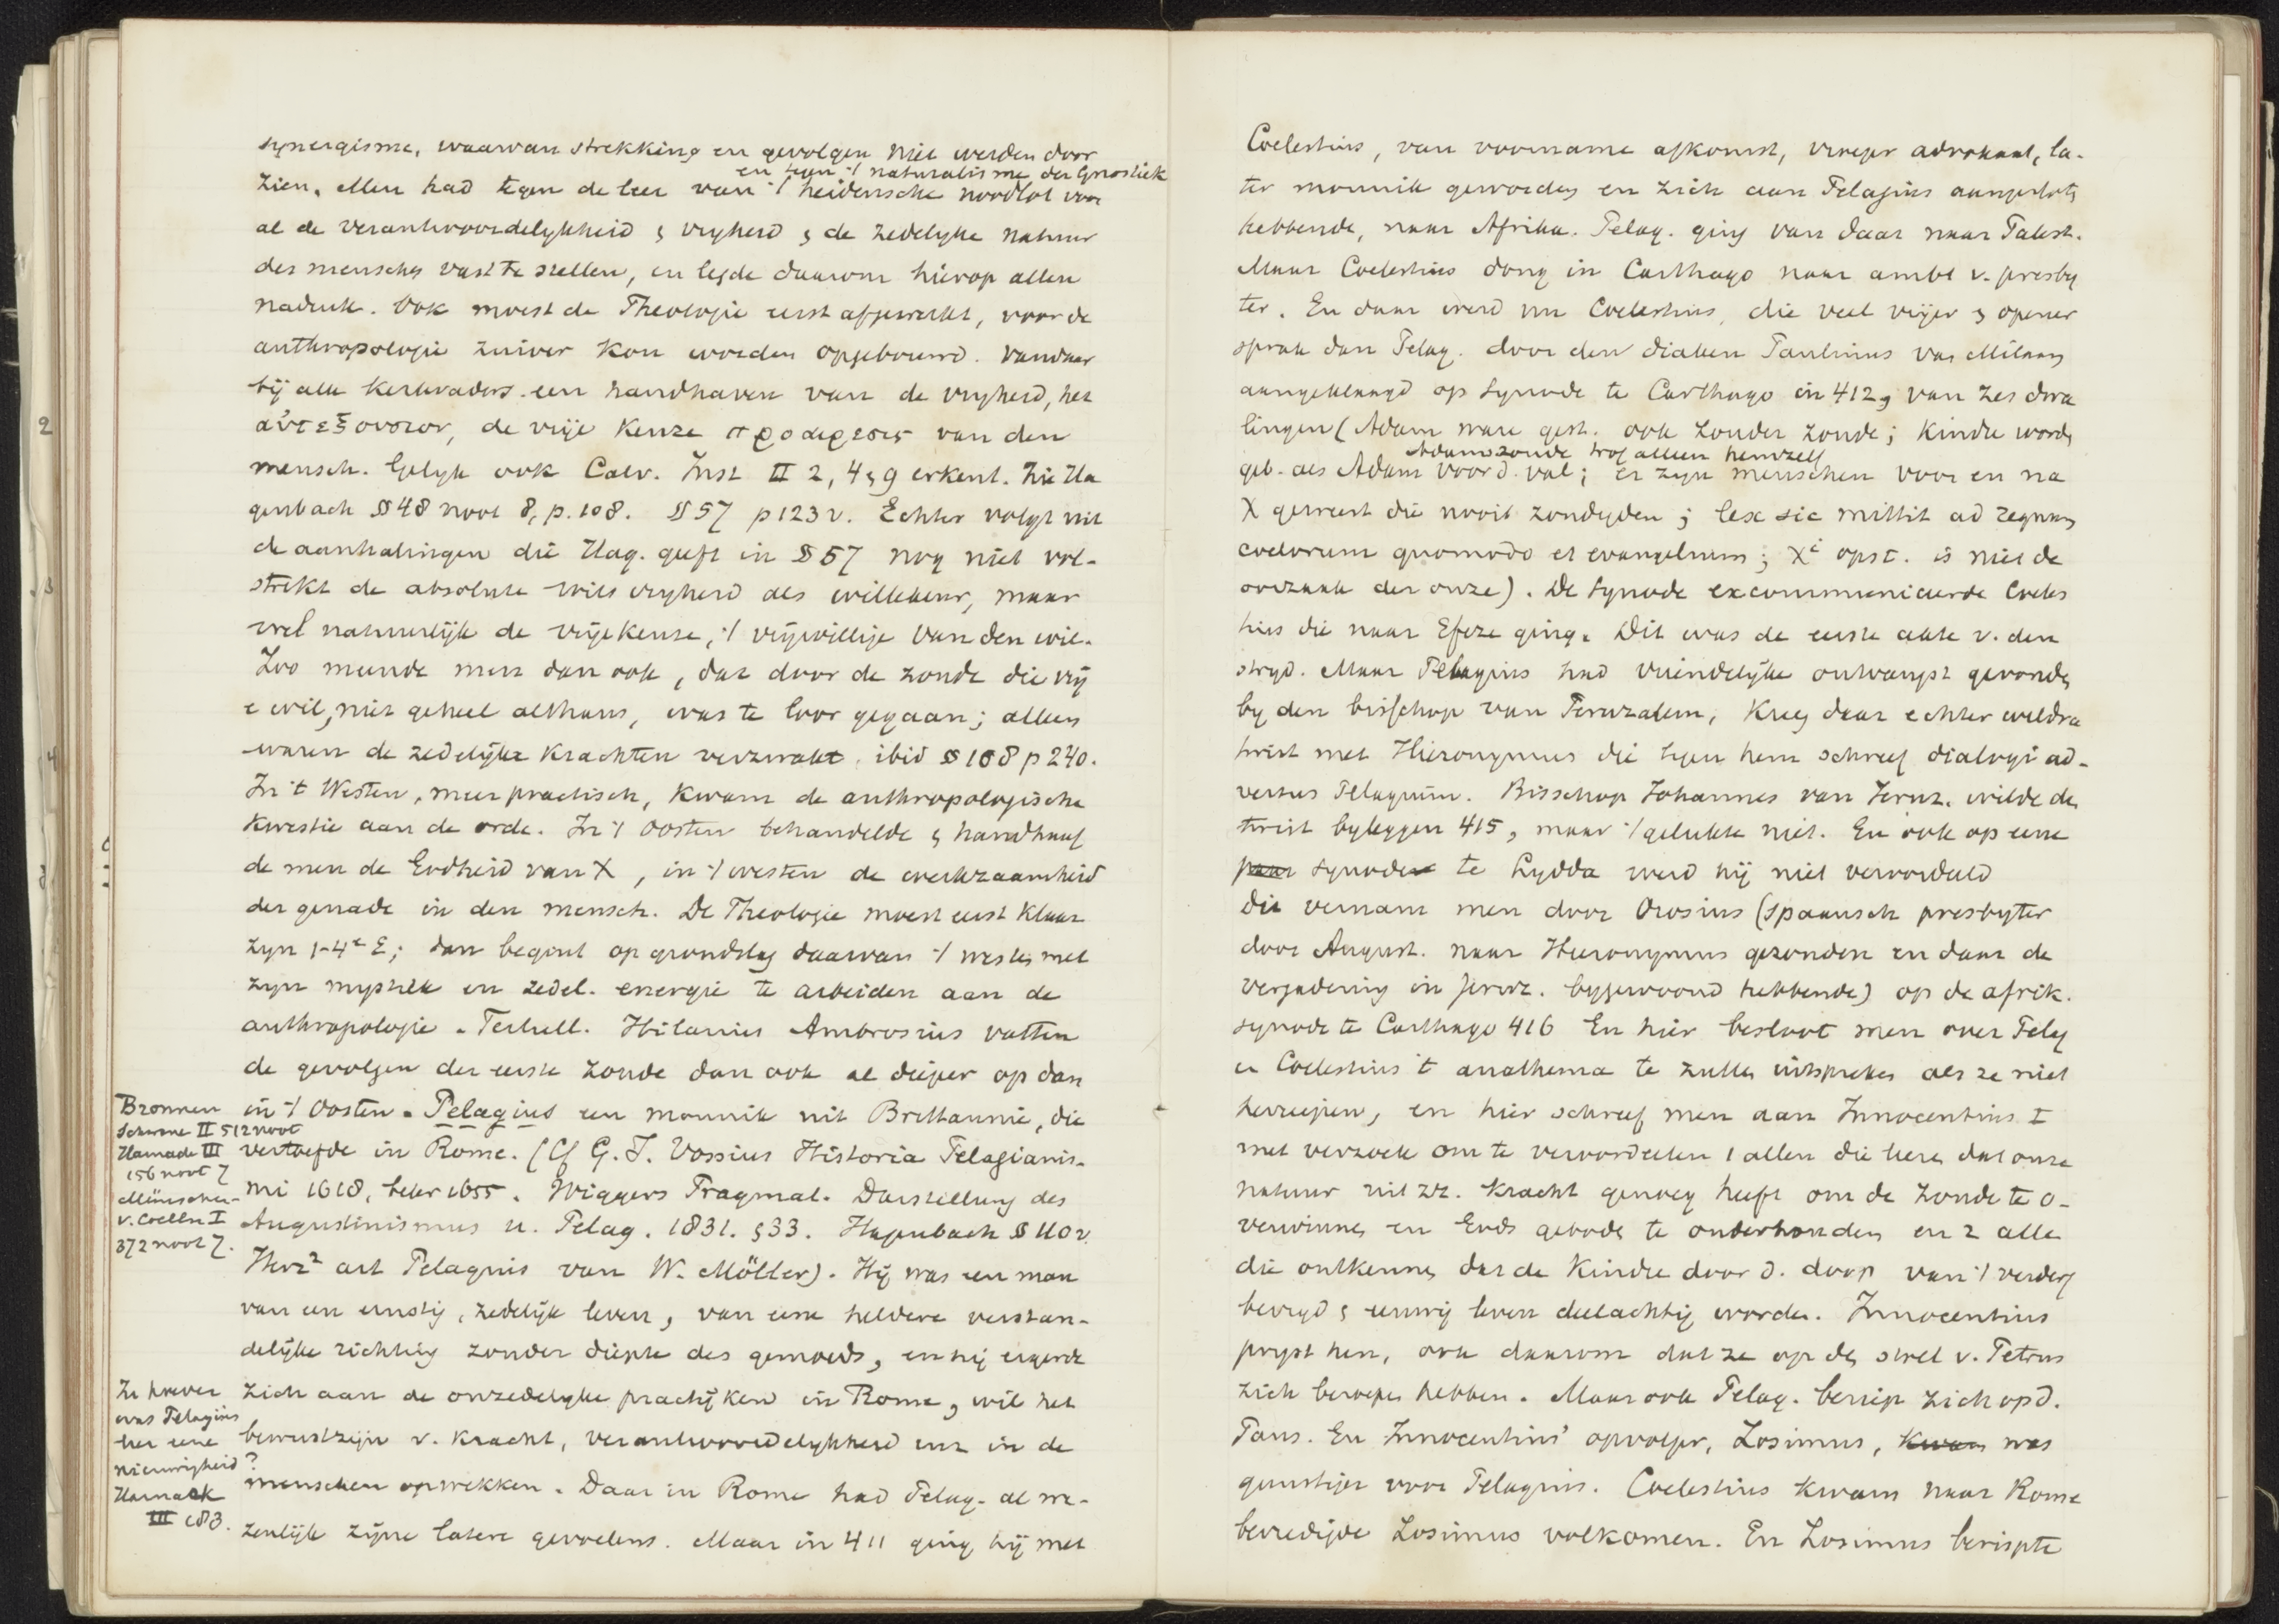 synergisme, waarvan strekking en gevolgen niet werden door
en tegen 't naturalisme der Gnostiek
zien. Men had tegen de leer van 't heidensche noodlot voor
al de verantwoordelykheid & vryheid & de zedelyke natuur
des menschen vast te stellen, en legde daarom hierop allen
nadruk. Ook moest de Theologie eerst afgewerkt, voor de
anthropologie zuiver kon worden opgebouwd. Vandaar
bij alle kerkvaders een handhaven van de vryheid, het
αὐτεξουσιον, de vrije keuze προαιρεσις van den
mensch. Gelyk ook Calv. Inst II 2, 4 & 9 erkent. Zie Ha
genbach §§ 48 noot 8, p. 108. §§ 57 p 123 v. Echter volgt uit
de aanhalingen die Hag. geeft in § 57 nog niet vol-
strekt de absolute wils vryheid als willekeur, maar
wel natuurlijk de vrije keuze, 't vrijwillige van den wil.
Zoo meende men dan ook, dat door de zonde die vrij
e wil, niet geheel althans, was te loor gegaan; alleen
waren de zedelijke krachten verzwakt. ibid § 108 p 240.
In 't Westen, meer practisch, kwam de anthropologische
kwestie aan de orde. In 't Oosten behandelde & handhaaf
de men de Godheid van X, in 't westen de werkzaamheid
der genade in den mensch. De Theologie moest eerst klaar
zyn 1-4e E; dan begint op grondslag daarvan 't westen met
zyn mystiek en zedel. energie te arbeiden aan de
anthropologie. Tertull. Hilarius Ambrosius vatten
de gevolgen der eerste zonde dan ook al dieper op dan
in 't Oosten. Pelagius een monnik uit Brittannie, die
vertoefde in Rome. (Cf G. J. Vossius Historia Pelagianis-
mi 1618, beter 1655. Wiggers Pragmat. Darstellung des
Augustinismus u. Pelag. 1831. & 33. Hagenbach § 110 v.
Herz² art Pelagius van W. Möller). Hij was een man
van een ernstig, zedelijk leven, van eene heldere verstan-
delijke richting zonder diepte des gemoeds, en hij ergerde
zich aan de onzedelyke practijken in Rome, wil het
bewustzijn v. kracht, verantwoordelykheid enz in de
menschen opwekken. Daar in Rome had Pelag. al we-
zenlijk zijne latere gevoelens. Maar in 411 ging hij met
Bronnen
Schwane II 512 noot
Harnack III
156 noot 7
Münscher-
v. Coelln I
372 noot 7.
In hoever
was Pelagius
leer eene
nieuwigheid?
Harnack
III 183.
Coelestius, van voorname afkomst, vroeger advokaat, la-
ter monnik geworden en zich aan Pelagius aangesloten
hebbende, naar Afrika. Pelag. ging van daar naar Palest.
Maar Coelestius dong in Carthago naar ambt v. presby
ter. En daar werd nu Coelestius, die veel vrijer & opener
sprak dan Pelag. door den diaken Paulinus van Milaan
aangeklaagd op synode te Carthago in 412, van zes dwa
lingen (Adam ware gest. ook zonder zonde; kindre worden
Adams zonde trof alleen hemzelf
geb. als Adam voor d. val; er zyn menschen voor en na
X geweest die nooit zondigden; lex sic mittit ad regnum
coelorum quomodo et evangelium; Xi opst. is niet de
oorzaak der onze). De synode excommuniceerde Coeles
tius die naar Efeze ging. Dit was de eerste akte v. den
stryd. Maar Pelagius had vriendelijke ontvangst gevonden
by den bisschop van Jeruzalem, kreeg daar echter weldra
twist met Hieronymus die tegen hem schreef dialogi ad-
versus Pelagium. Bisschop Johannes van Jeruz. wilde de
twist byleggen 415, maar 't gelukte niet. En ook op eene
paar synode te Lydda werd hij niet veroordeeld
Dit vernam men door Orosius (spaansch presbyter
door August. naar Hieronymus gezonden en daar de
vergadering in Jeruz. bygewoond hebbende) op de afrik.
synode te Carthago 416 En hier besloot men over Pelag
en Coelestius 't anathema te zullen uitspreken als ze niet
herriepen, en hier schreef men aan Innocentius I
met verzoek om te veroordeelen 1 allen die leren dat onze
natuur uit zz. kracht genoeg heeft om de zonde te o-
verwinnen en Gods geboden te onderhouden en 2 alle
die ontkennen dat de kindre door d. doop van 't verderf
bevryd & eeuwig leven deelachtig worden. Innocentius
pryst hen, ook daarom dat ze op den stoel v. Petrus
zich beroepen hebben. Maar ook Pelag. beriep zich op d.
Paus. En Innocentius' opvolger, Zosimus, kwam was
gunstiger voor Pelagius. Coelestius kwam naar Rome
bevredigde Zosimus volkomen. En Zosimus berispte